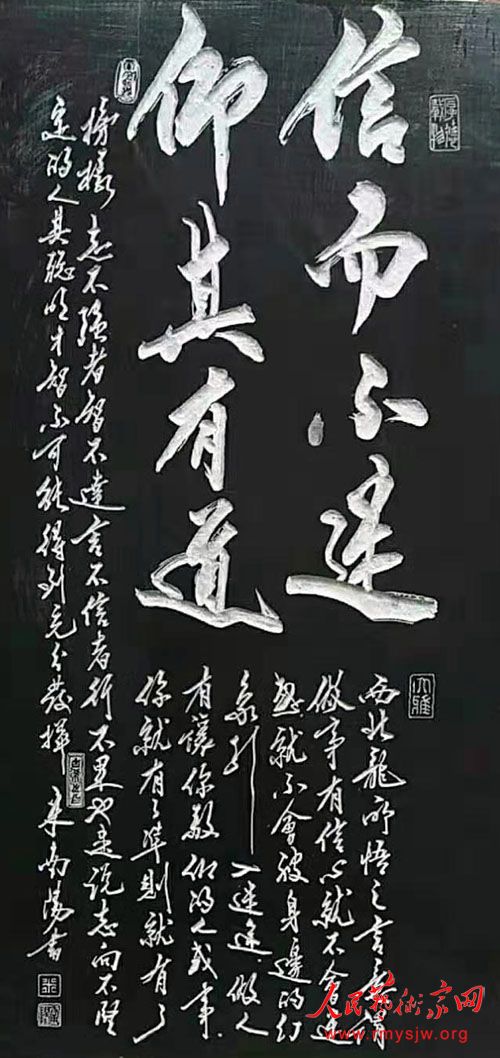 信而不迷
仰其有道
西北龍所悟之言
做事有信心就不會迷
惑就不會被身邊的幻
象引入迷途做人
有讓你敬仰的人或事
你就有了準則就有了
榜樣 志不强者智不達言不信者行不果也是说志向不堅
定的人其聪明才智不可能得到充分發揮 書
厚德載物
大雅
人民藝術家网
www.rmysjw.org